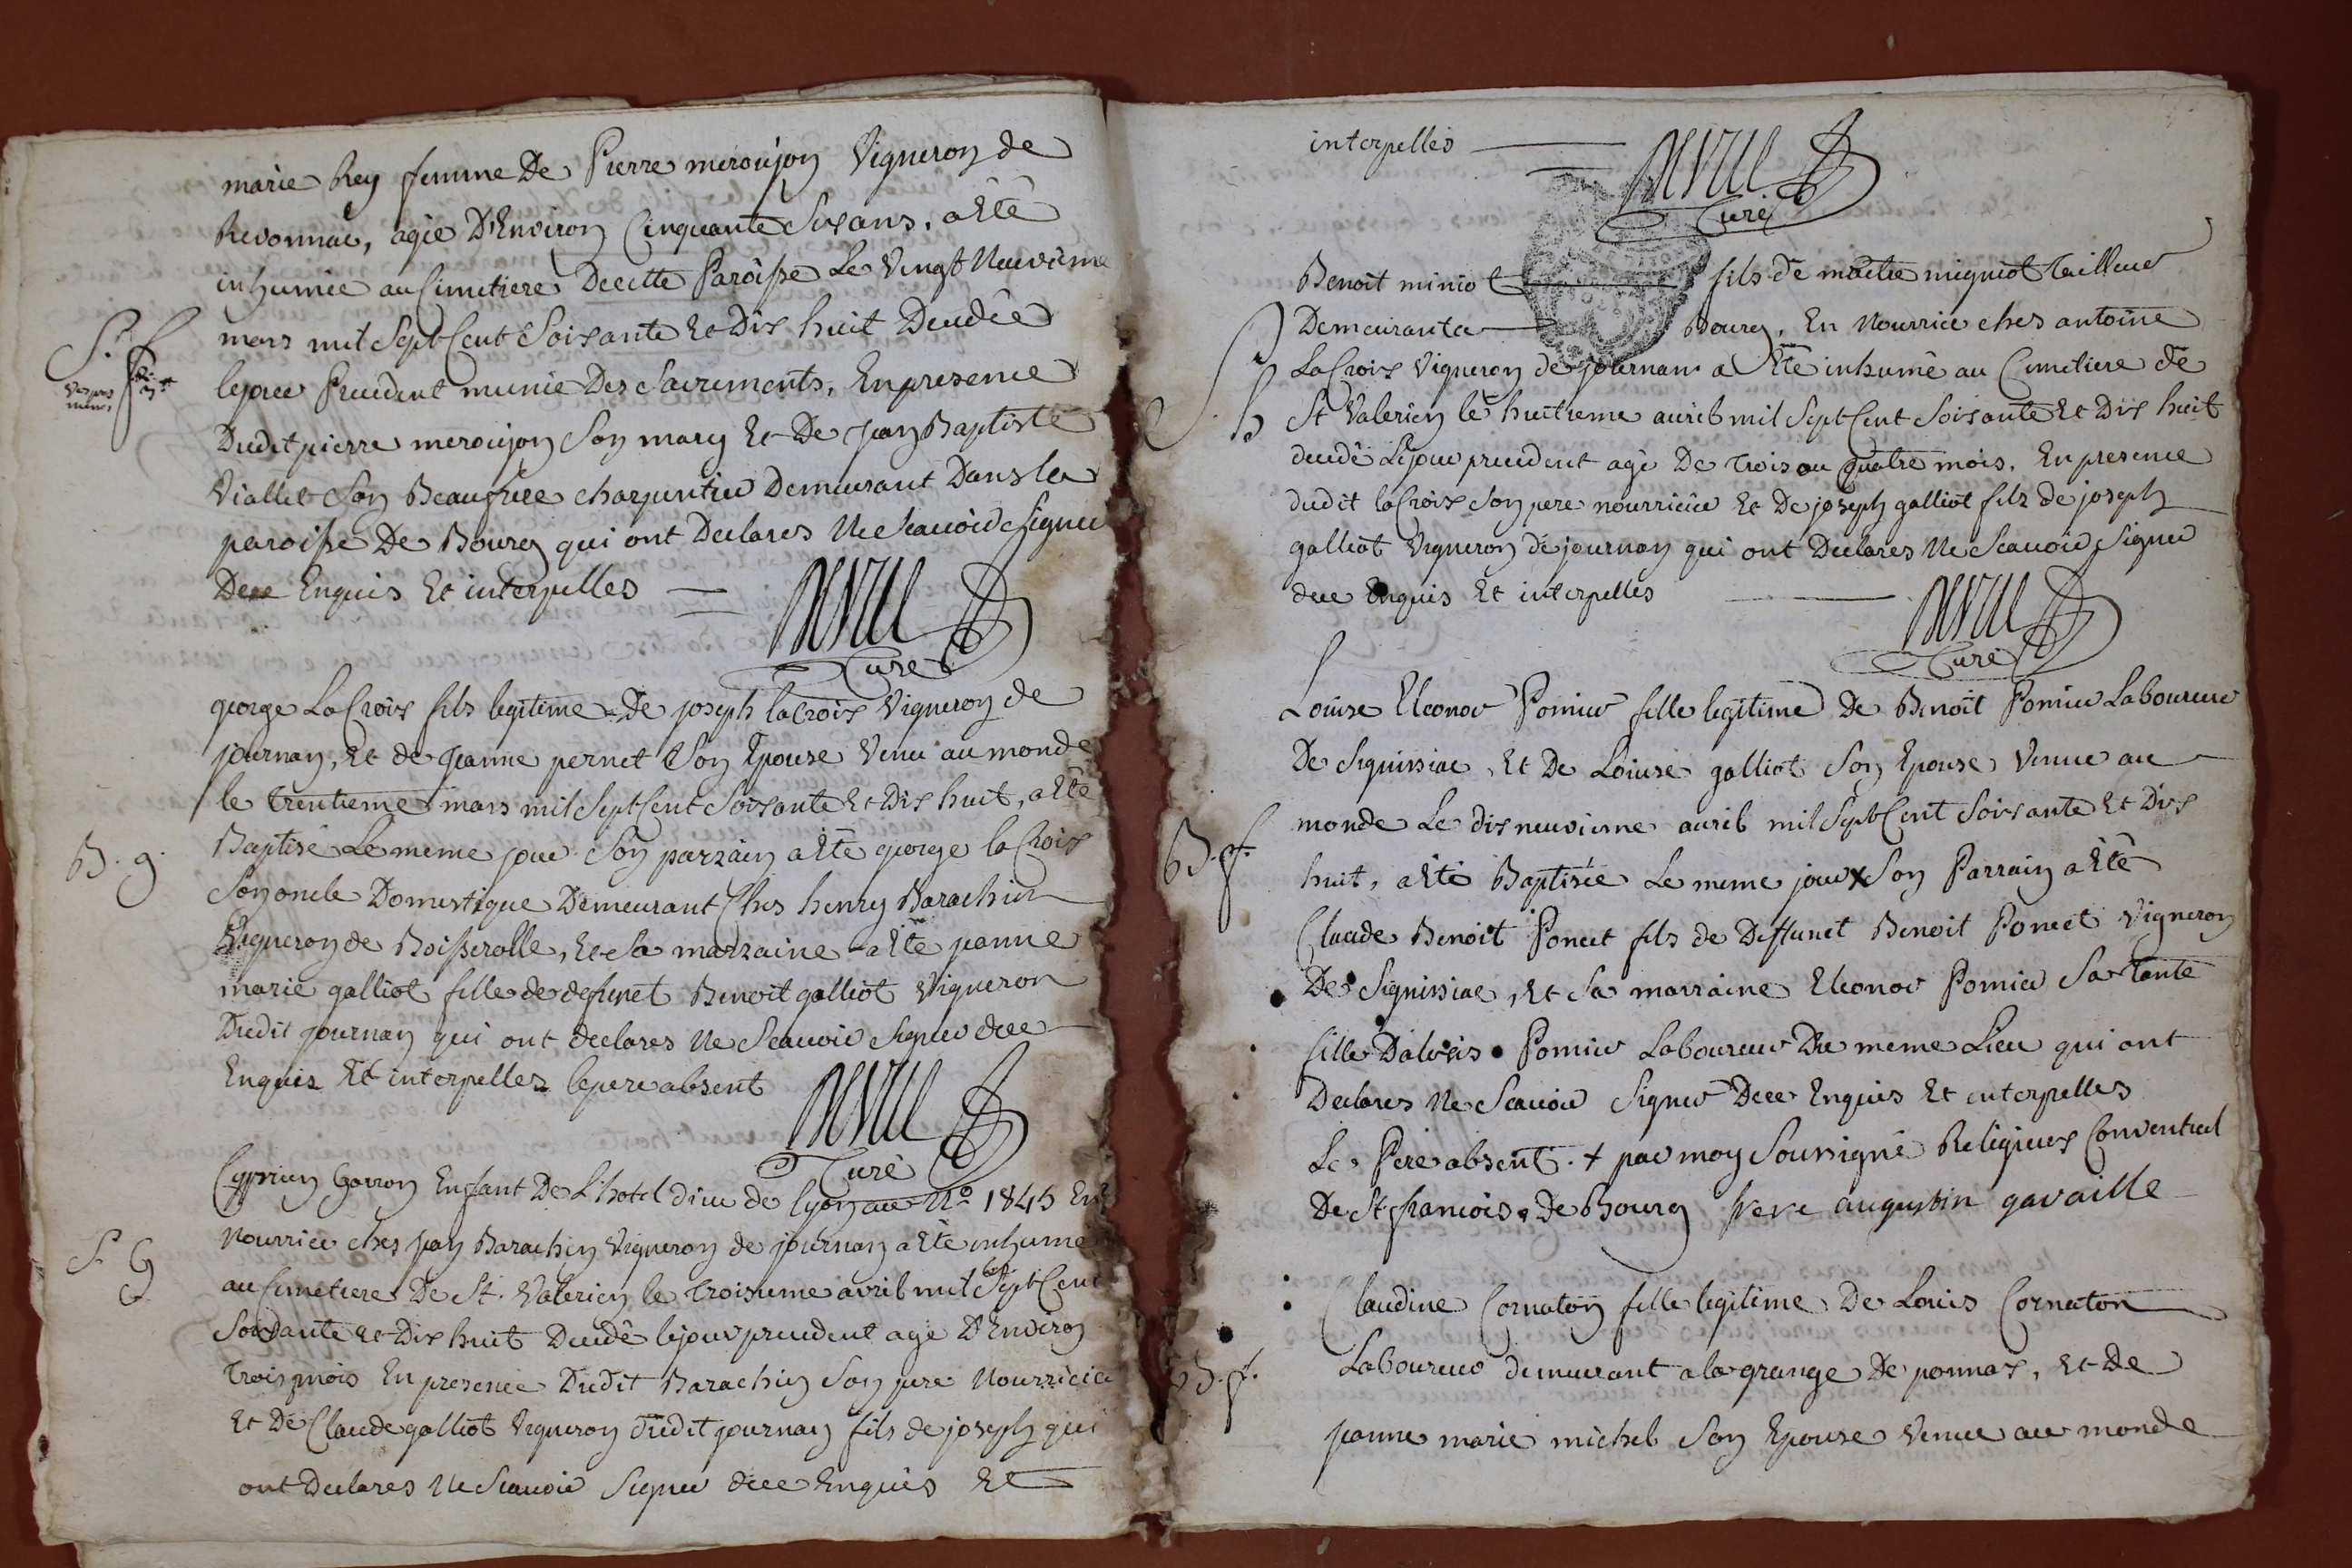 marie Rey femme De Pierre meroujon Vigneron de
Revonnac, agée D'Environ Cinquante Six ans, a Eté
inhumée au Cimetiere De cette Paroisse Le Vingt Neuvième
mars mil Sept Cent Soixante Et Dix huit Decedée
S. f.
le jour Precedent munie Des Sacrements, En presence
Dudit pierre meroujon Son mary Et De Jean Baptiste
Viallet Son Beaufrere charpentier Demeurant Dans la
paroisse De Bourg qui ont Declarés Ne Scavoir Signer
De ce Enquis Et interpelles
Curé
george LaCroix fils legitime De joseph laCroix Vigneron de
journan, Et de Jeanne pernet Son Epouse Venu au monde
le trentieme mars mil Sept Cent Soixante Et Dix huit, a Eté
B. g.
Baptisé Le meme jour Son parrain a Eté george la Croix
Son oncle Domestique Demeurant Ches henry Barachin
Vigneron de Boisserolle, Et Sa marraine a Eté jeanne
marie galliot fille de defunct Benoit galliot Vigneron
Dudit journan qui ont declares Ne Scavoir Signer de ce
Enquis Et interpelles le pere absent
Curé
Cyprien Garron Enfant De L'hotel dieu de lyon au No 1845 En
S. G
Nourrice ches jean Barachin Vigneron de journan a Eté inhumé
au Cimetiere De St. Valerien le Troisieme avril mil Sept Cent
Soixante Et Dix huit Decedé le jour precedent agé D'Environ
Trois mois En presence Dudit Barachin Son pere Nourricie
Et De Claude galliot Vigneron dudit journan fils de joseph qui
ont Declares Ne Scavoir Signer de ce Enquis Et
interpelles
Curé
Benoit miniot fils de maitre migniot Tailleur
Demeurant a Bourg, En Nourrice ches antoine
LaCroix Vigneron de journan a Eté inhumé au Cimetiere de
S. b
St Valerien le huitieme avril mil Sept Cent Soixante Et Dix huit
decedé Le jour precedent agé De Trois ou quatre mois, En presence
dudit laCroix Son pere nourricie Et De joseph galliot fils de joseph
galliot Vigneron de journan qui ont Declares Ne Scavoir Signer
de ce Enquis Et interpelles
Curé
Louise Eleonor Pomier fille legitime De Benoit Pomier Laboureur
De Siquissiac, Et De Louise galliot Son Epouse Venue au
monde Le dix neuvieme avril mil Sept Cent Soixante Et Dix
B. f.
huit, a Eté Baptisée Le meme jour x Son Parrain a Eté
Claude Benoit Poncet fils de Deffunct Benoit Poncet Vigneron
De Signissiac, Et Sa marraine Eleonor Pomier Sa Tante
fille D'alexis Pomier Laboureur Du meme Lieu qui ont
Declares Ne Scavoir Signer De ce Enquis Et interpelles
Le Pere absent. + par moy Soussigné Religieux Conventuel
De St francois De Bourg frere augustin gavaille
Claudine Cornaton fille legitime De Louis Cornaton
B. f.
Laboureur demeurant a la grange De ponnas, Et De
jeanne marie michel Son Epouse Venue au monde